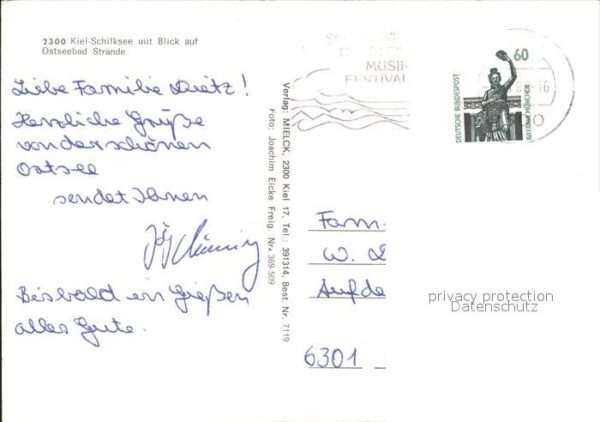 2300 Kiel-Schilksee mit Blick auf
Ostseebad Strande
Liebe Familie Dietz!
Herzliche Grüße
von der schönen
Ostsee
sendet Ihnen
Bis bald in Gießen
alles Gute.
Verlag: MIELCK, 2300 Kiel 17, Tel.: 391314, Best. Nr. 7119
Foto: Joachim Eicke Freig. Nr. 369-509
MUSIK
FESTIVAL
60
DEUTSCHE BUNDESPOST
BAVARIA MÜNCHEN
16
Fam.
W.
Auf de
6301
privacy protection
Datenschutz